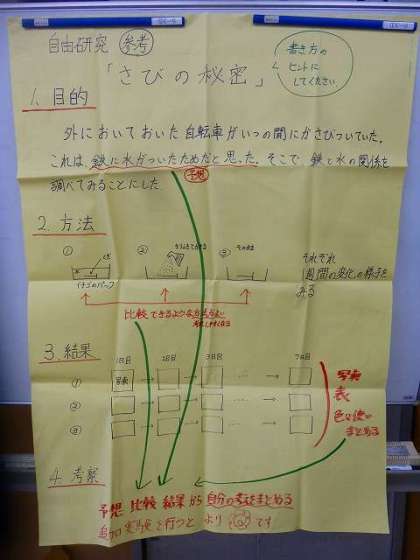 自由研究 参考
「さびの秘密」
書き方の
ヒントに
してください
1. 目的
外においておいた自転車がいつの間にかさびついていた。
これは、鉄に水がついたためだと思った。そこで 鉄と水の関係を
予想
調べてみることにした
2. 方法
① ② ③
くぎ
そのまま
イチゴのパック
それぞれ
週間の変化の様子を
みる
比較できるような
3. 結果
1日目 2日目 3日目 7日目
① 写真
②
③
写真
表
色々使って
まとめる
4. 考察
予想 比較 結果から自分の考えをまとめる
追加実験を行うと より です